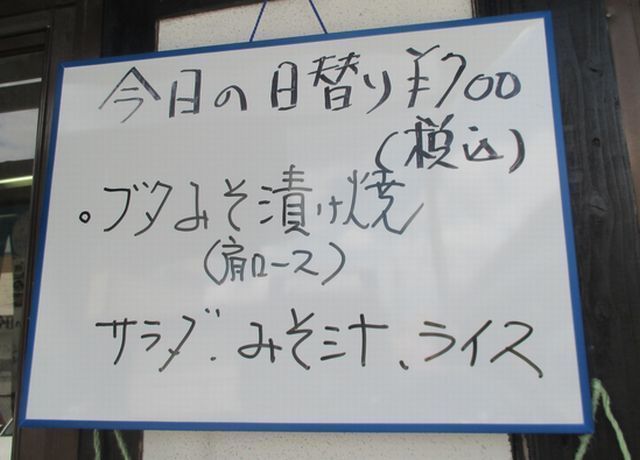 今日の日替り¥700
(税込)
。ブタみそ漬け焼
(肩ロース)
サラダ、みそ汁、ライス